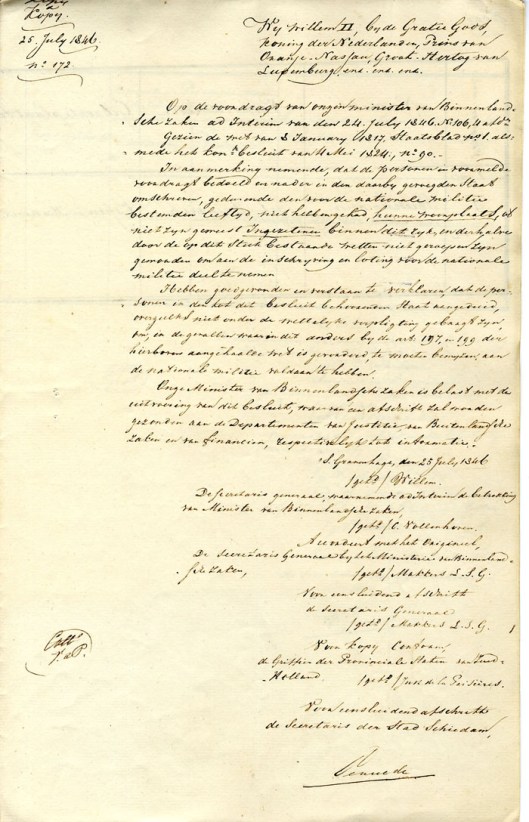 Kopy
Kopy
25 July 1846
nº 172.
Wij Willem II, by de Gratie Gods,
Koning der Nederlanden, Prins van
Oranje-Nassau, Groot-Hertog van
Luxemburg, enz. enz. enz.
Op de voordragt van onzen minister van Binnenland-
sche Zaken ad Interim van den 24 July 1846 Nº 106, 4e afdn
Gezien de wet van 8 January 1817, Staatsblad nº 1. als-
mede het kone besluit van 4 Mei 1824, nº 90.-
In aanmerking nemende, dat de personen in voormelde
voordragt bedoeld en nader in den daarby gevoegden Staat
omschreven, gedurende den voor de nationale militie
bestemden leeftyd, niet hebben gehad, hunne woonplaats, of
niet zyn geweest Ingezetenen binnen dit ryk, en derhalve
door de op dit Stuk bestaande wetten niet geroepen zyn
geworden om aan de inschryving en loting voor de nationale
militie deel te nemen
Hebben goedgevonden en verstaan te verklaren, dat de per-
sonen in den tot dit besluit behoorenden Staat aangeduid,
overzulks niet onder de wettelyke verpligting gebragt zyn,
om, in de gevallen waarin dit anders by de art. 197 en 199 der
hierboven aangehaalde wet is gevorderd, te moeten bewyzen, aan
de nationale militie voldaan te hebben.
Onze Minister van Binnenlandsche zaken is belast met de
uitvoering van dit besluit, waarvan een afschrift zal worden
gezonden aan de Departementen van Justitie, van Buitenlandsche
Zaken en van Financien, respectivelyk tot informatie.
's Gravenhage, den 25 July 1846
/get./ Willem.
De Secretaris generaal, waarnemende ad Interim de betrekking
van Minister van Binnenlandsche Zaken,
/get./ C. Vollenhoven.
Accordeert met het Origineel,
De Secretaris Generaal by het Ministerie van Binnenland-
sche Zaken,
/get./ Makkers L. S. G.
Voor eensluidend afschrift
de Secretaris Generaal
/get./ Makkers L. S. G.
Voor Kopy Conform,
de Griffier der Provinciale Staten van Zuid-
Holland.
/get./ de la
Voor eensluidend afschrift
de Secretaris der Stad Schiedam,